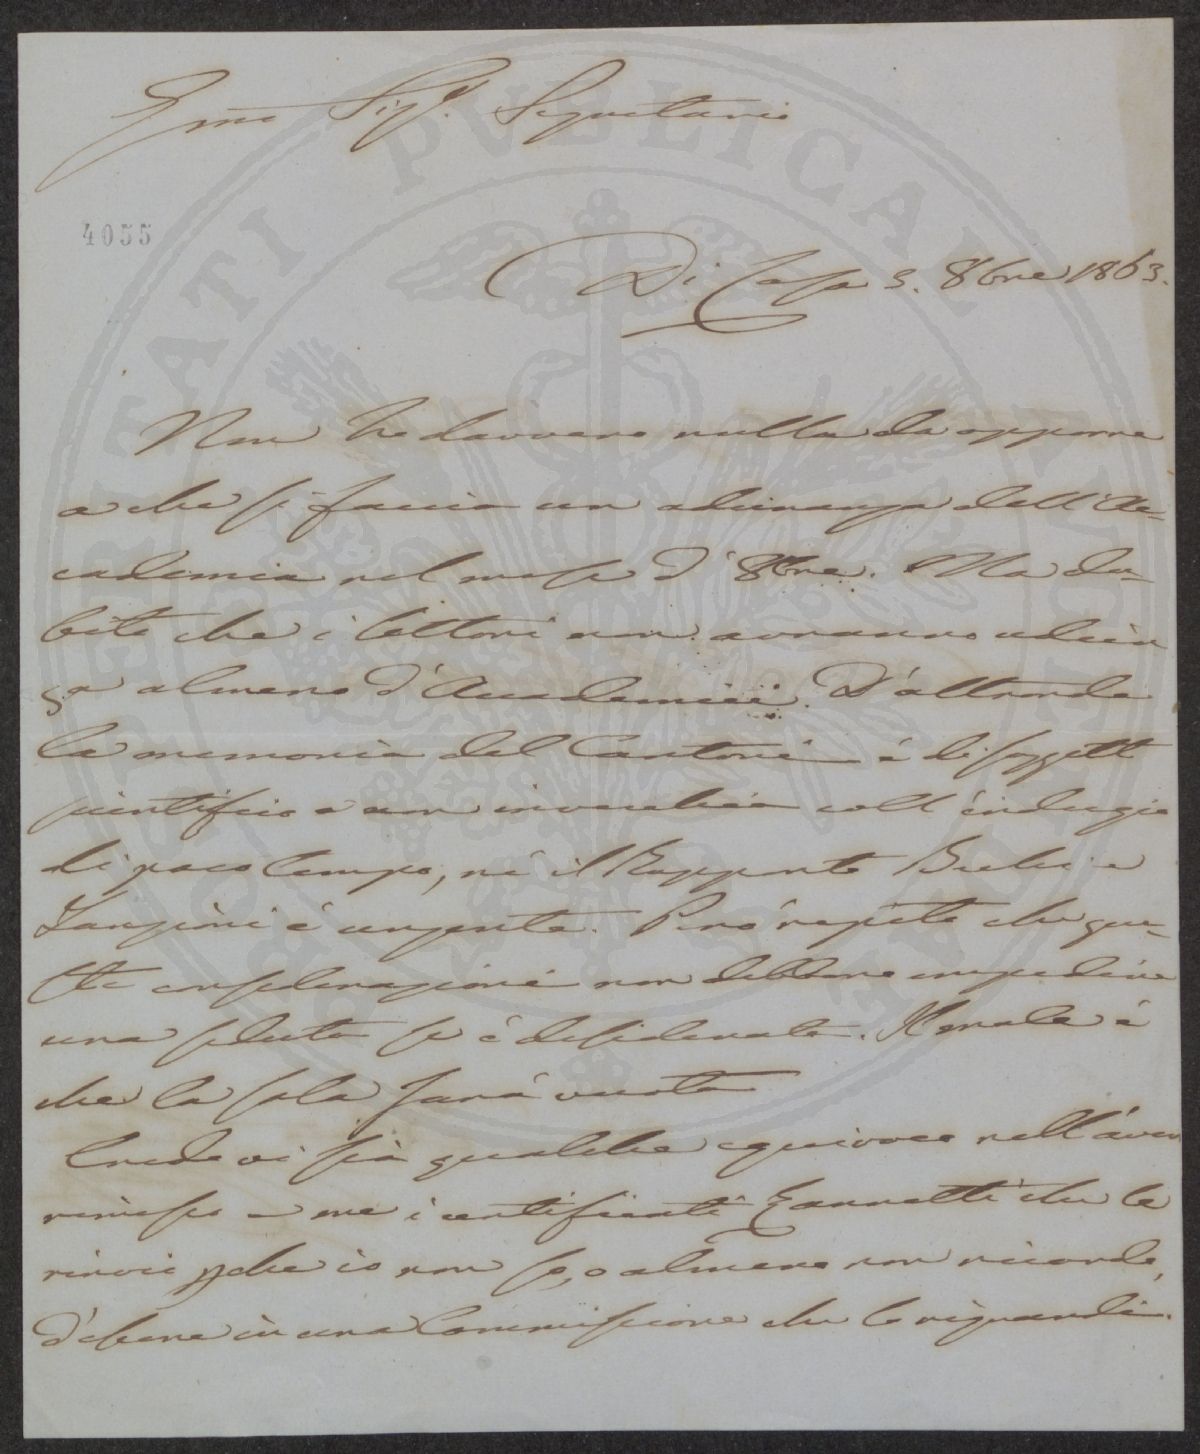 Emo Sigr. Segretario
4055
Di Casa 3. 8bre 1863.
Non ho davvero nulla da opporre
a che si faccia un adunanza dell'Ac-
cademia nel mese d'8bre. Ma du-
bito che i lettori non avranno udien
za almeno d'Accademici. D'altronde
la memoria del Cantoni è di soggett
scientifico e non invecchia coll'indugio
di poco tempo, nè il Rapporto e
Tanzini è urgente. Però repeto che que-
ste considerazioni non debbono impedire
una seduta se è desiderata. Il male è
che la sala sarà vuota
Credo vi sia qualche equivoco nell'aver
rimesso a me i certificati Zannetti che le
rinvio pche io non so, o almeno non ricordo,
d'essere in una Commissione che lo riguardi.
PROSPERITATI PUBLICAE AUGENDAE